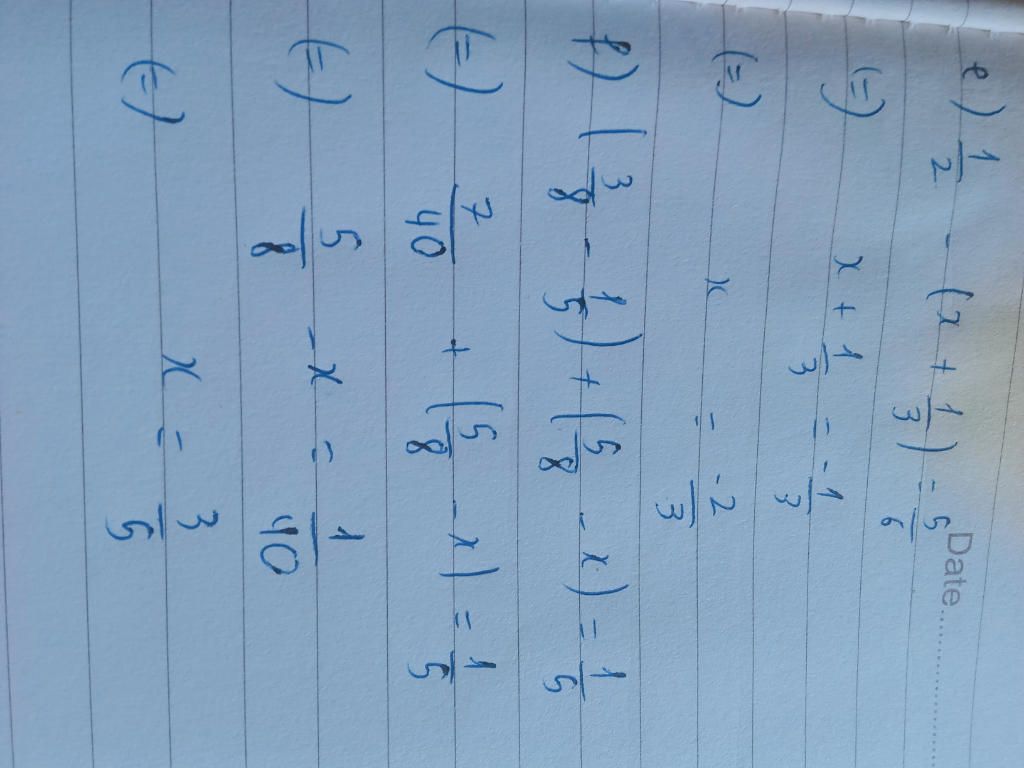 Date
e) 1/2 - (x + 1/3) = 5/6
(=) x + 1/3 = -1/3
(=) x = -2/3
f) (3/8 - 1/5) + (5/8 - x) = 1/5
(=) 7/40 + (5/8 - x) = 1/5
(=) 5/8 - x = 1/40
(=) x = 3/5